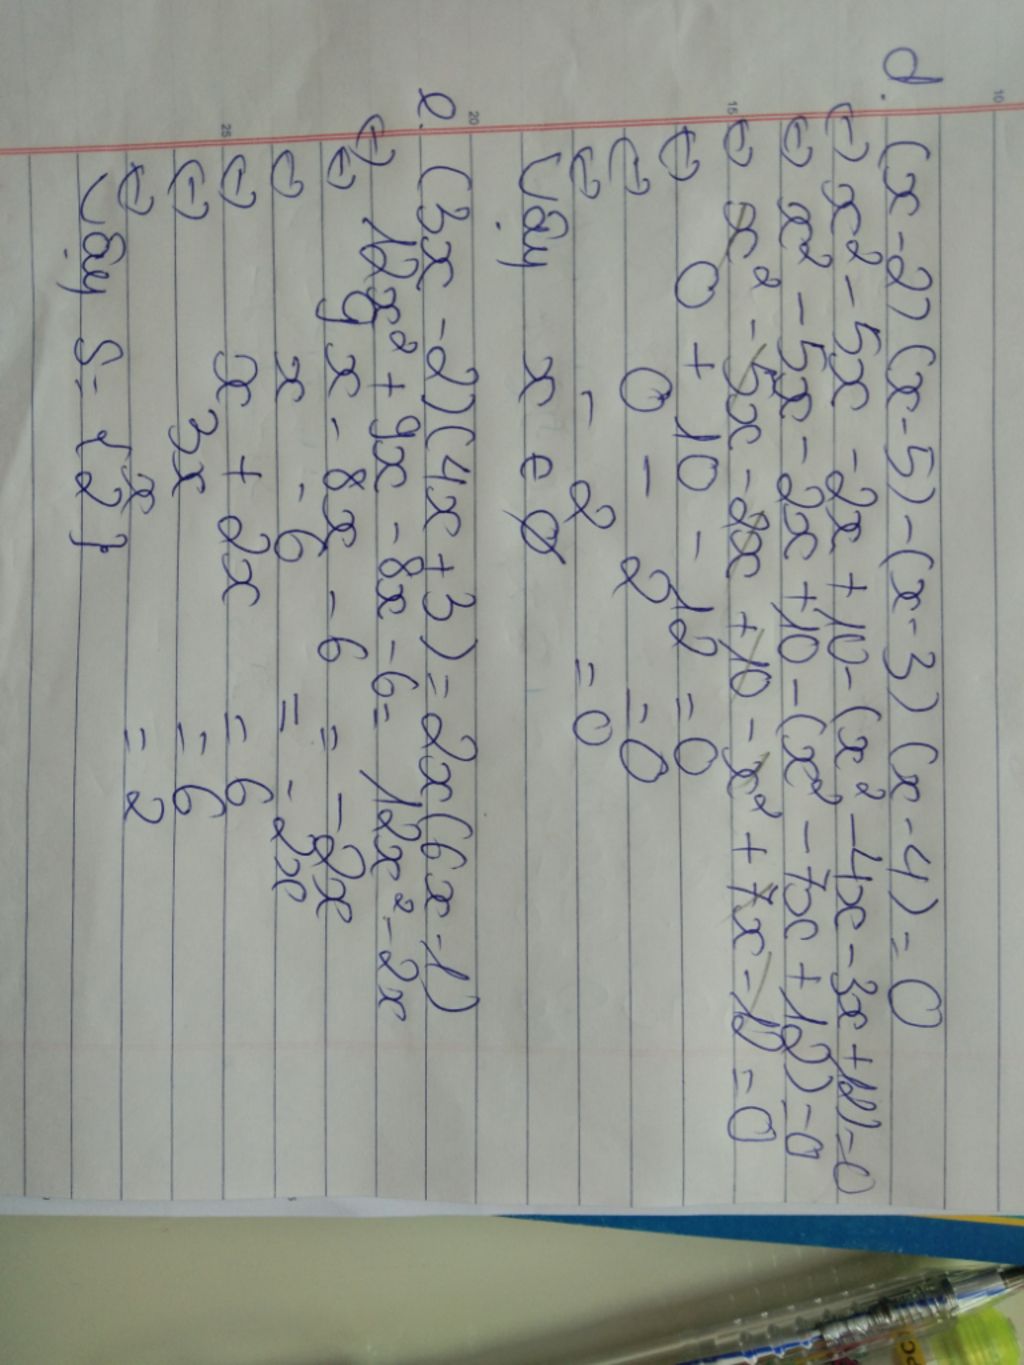 d. (x-2)(x-5)-(x-3)(x-4)=0
(=) x² - 5x - 2x + 10 - (x² - 4x - 3x + 12) = 0
(=) x² - 5x - 2x + 10 - (x² - 7x + 12) = 0
(=) x² - 5x - 2x + 10 - x² + 7x - 12 = 0
(=) 0 + 10 - 12 = 0
(=) 0 - 2 = 0
(=) - 2 = 0
Vậy x ∈ ∅
e. (3x - 2)(4x + 3) = 2x(6x - 1)
(=) 12x² + 9x - 8x - 6 = 12x² - 2x
(=) 9x - 8x - 6 = - 2x
(=) x - 6 = - 2x
(=) x + 2x = 6
(=) 3x = 6
(=) x = 2
Vậy S = {2}
10
15
20
25